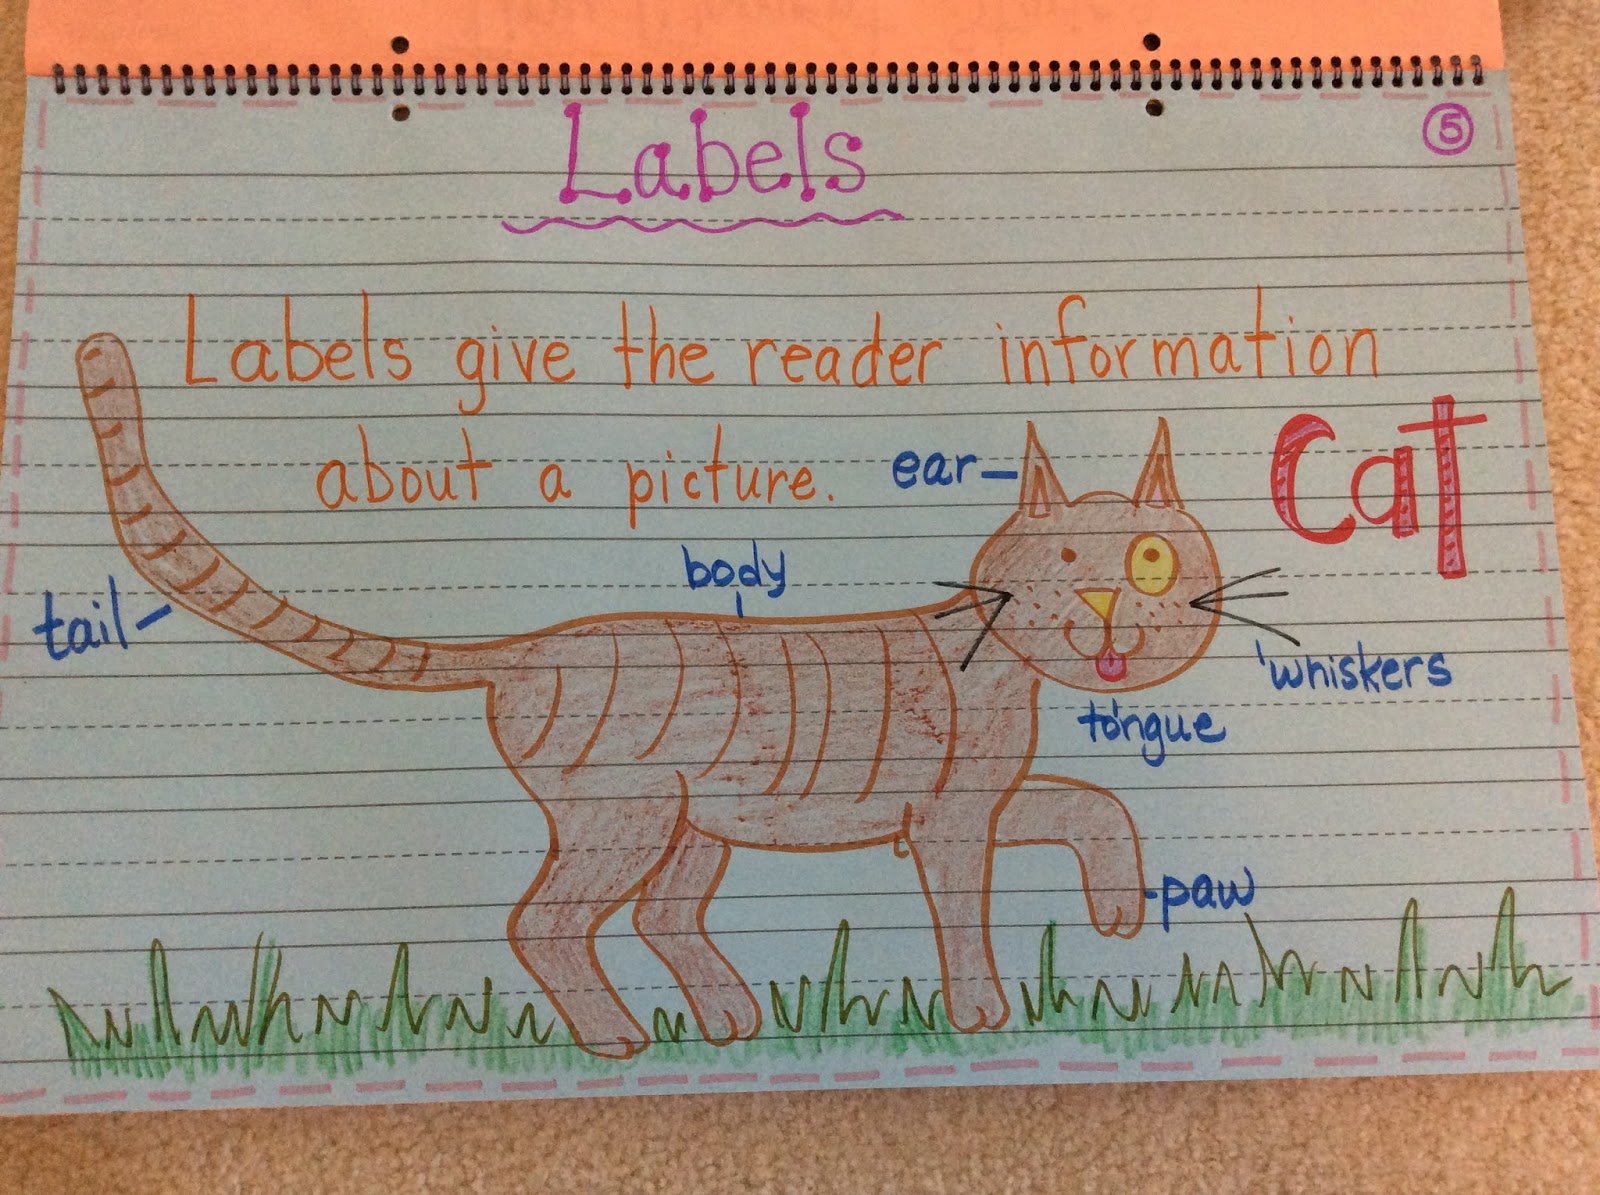 Labels
5
Labels give the reader information
about a picture.
Cat
ear
body
tail
whiskers
tongue
paw